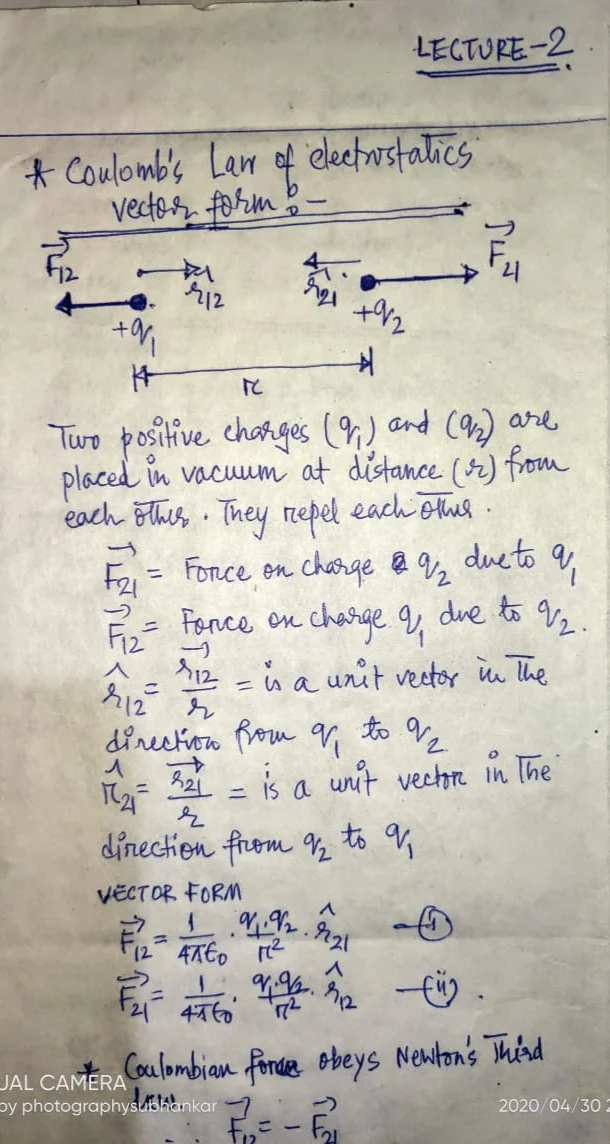 LECTURE-2
* Coulomb's Law of electrostatics
vector form :-
F₁₂→ r̂₁₂ r̂₂₁ F₂₁→
+q₁ +q₂
r
Two positive charges (q₁) and (q₂) are
placed in vacuum at distance (r) from
each other. They repel each other.
F₂₁→ = Force on charge q₂ due to q₁
F₁₂→ = Force on charge q₁ due to q₂.
r̂₁₂ = r₁₂→/r = is a unit vector in the
direction from q₁ to q₂
r̂₂₁ = r₂₁→/r = is a unit vector in the
direction from q₂ to q₁
VECTOR FORM
F₁₂→ = 1/4πε₀ · q₁.q₂/r² · r̂₂₁ —(i)
F₂₁→ = 1/4πε₀ · q₁.q₂/r² · r̂₁₂ —(ii).
* Coulombian force obeys Newton's Third
law
∴ F₁₂→ = - F₂₁→
UAL CAMERA
by photographysubhankar
2020/04/30 2